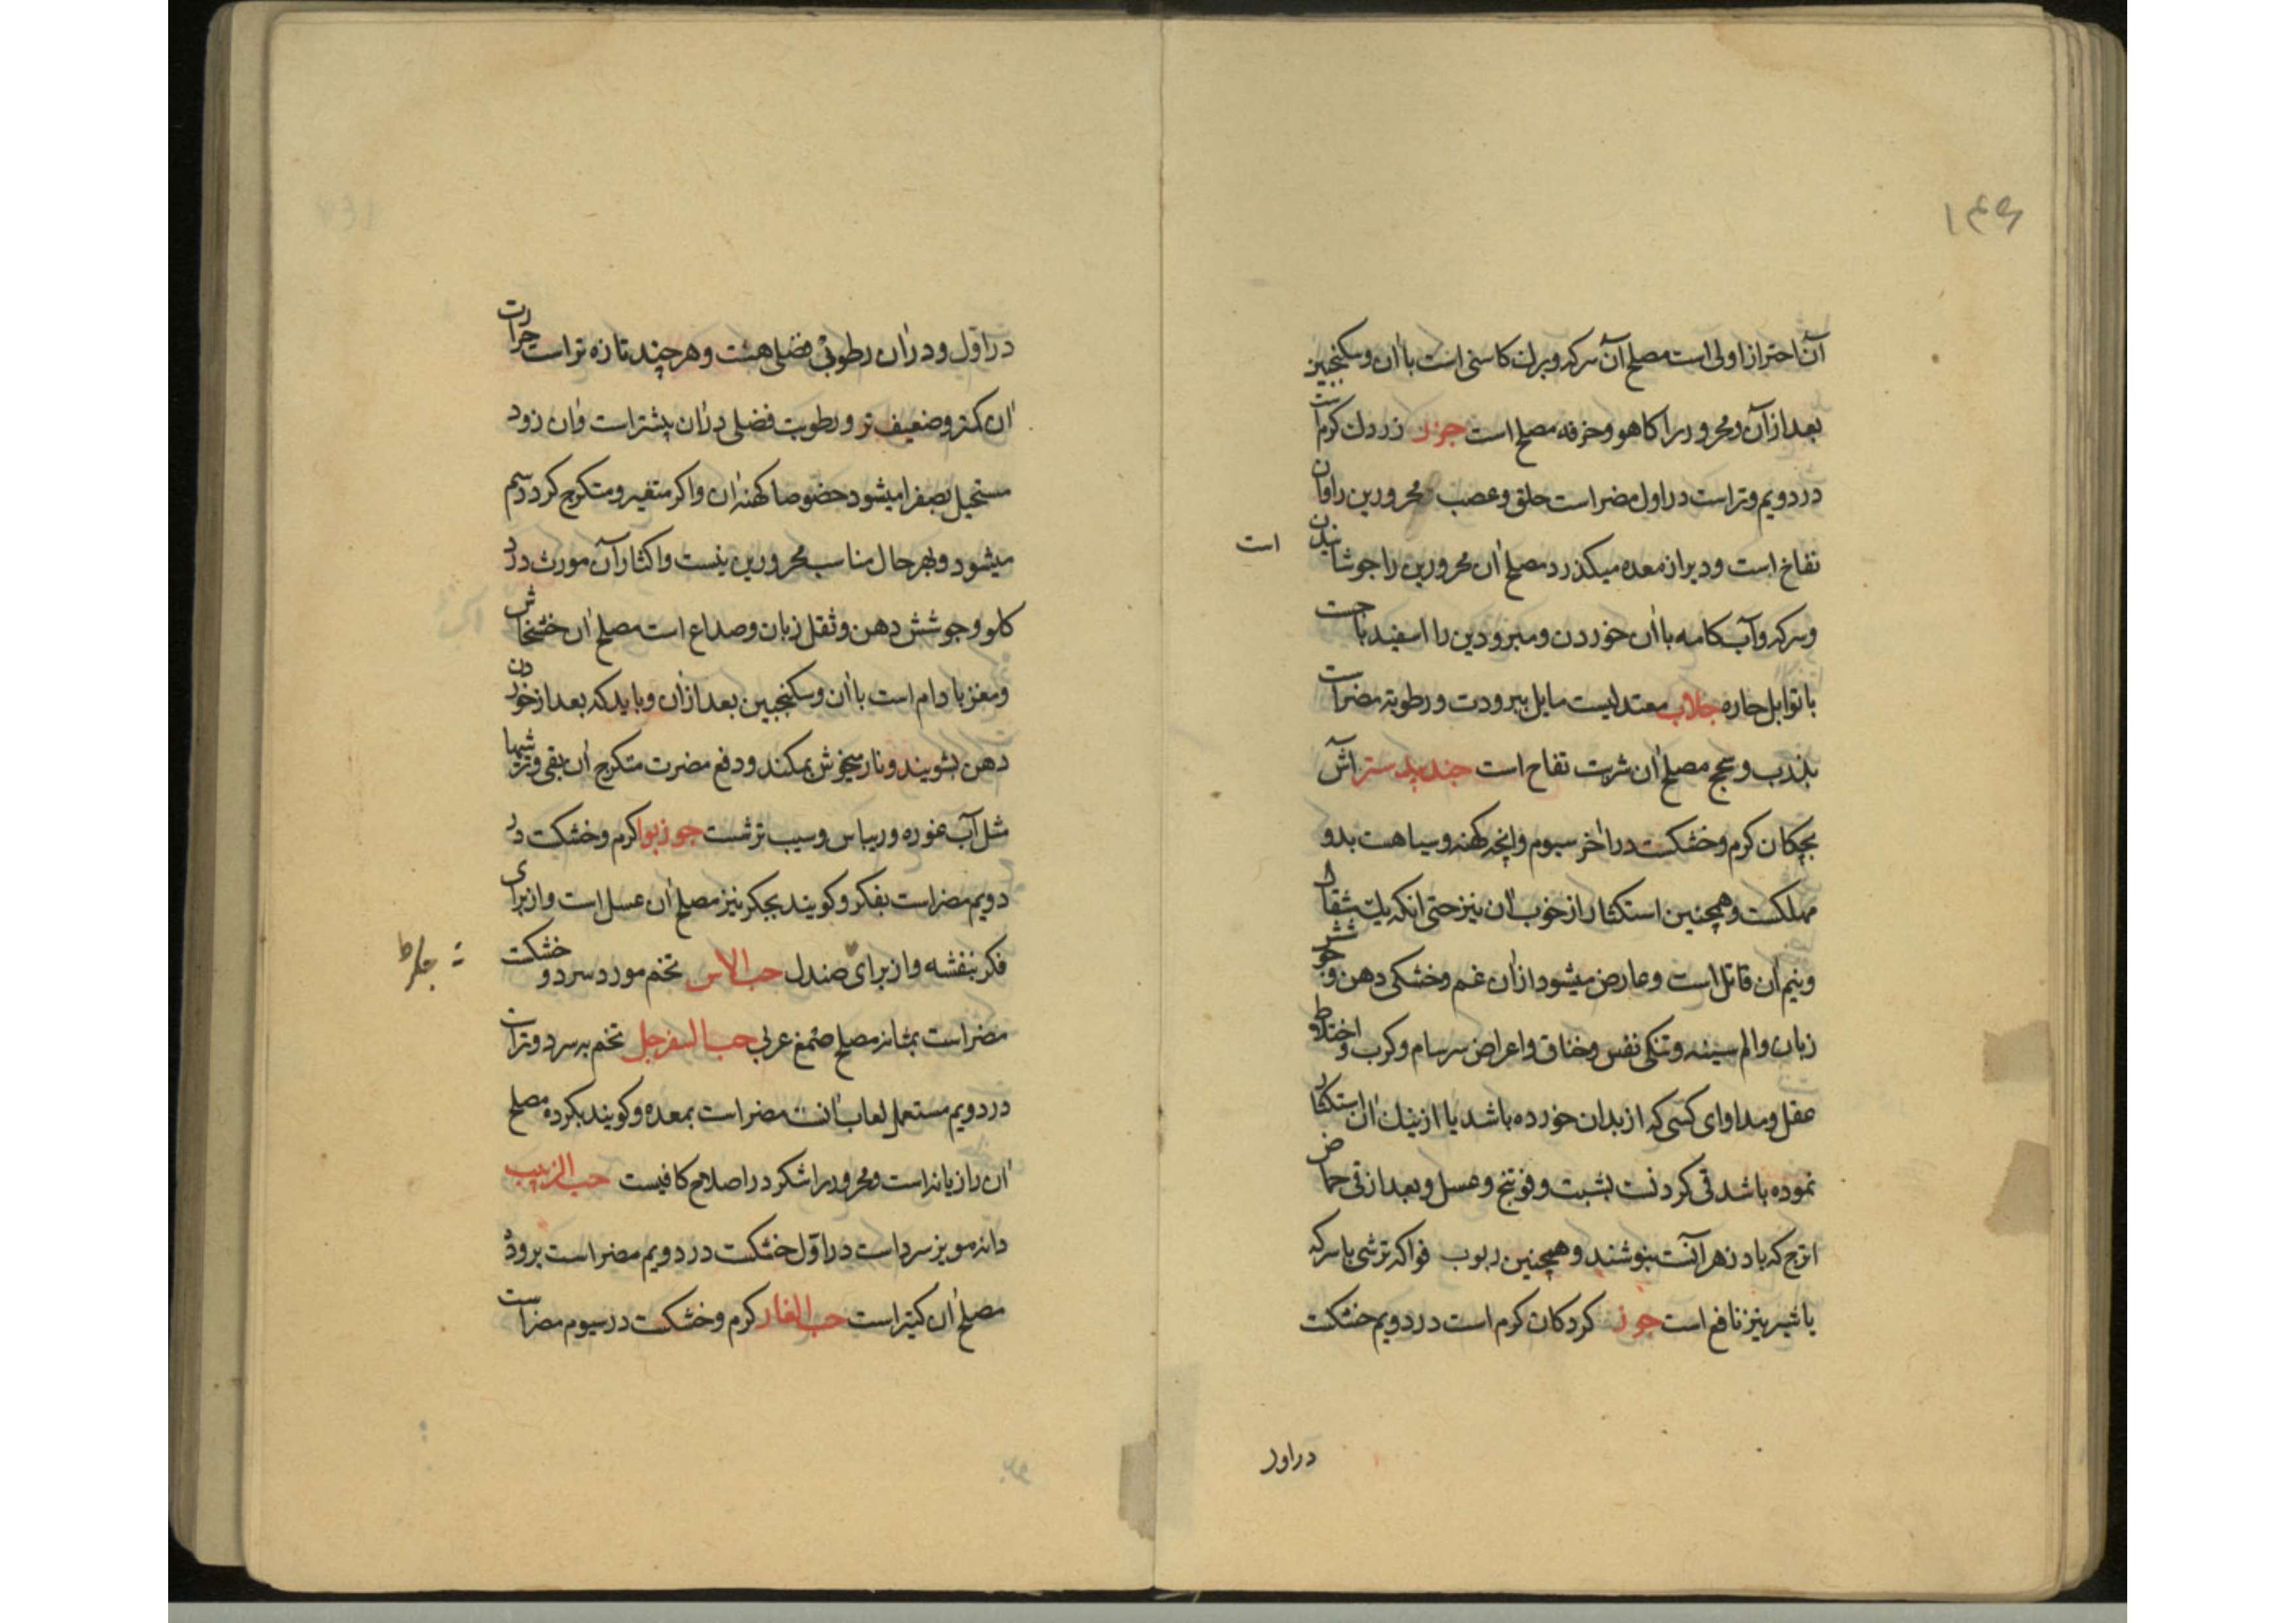 ۱۴۶
آن احتراز اولی است مصلح آن سرکه و برك کاسنی است با ان و سکنجبین
بعد از آن و محرور را کاهو و خرفه مصلح است جزر زردك کرم است
در دویم و تر است در اول مضر است حلق و عصب محرورین را و ان
نفاخ است و دیر از معده میکذرد مصلح ان محرورین را جوشانیدن است
و سرکه و آب کامه با ان خوردن و مبرودین را اسفیدباجت
با توابل حاره جلاب معتدلیست مایل ببرودت و رطوبة مضر است
بذرب و سحج مصلح ان شربت تفاح است جندبیدستر اش
بچکان کرم و خشکست در اخر سیوم و انچه کهنه و سیاهست بد و
مهلکست و همچنین استکثار از خوب ان نیز حتی انکه یك مثقال
و نیم ان قاتل است و عارض میشود از ان غم و خشکی دهن و جوشش
زبان و الم سینه و تنکی نفس و خناق و اعراض سرسام و کرب و اختلاط
عقل و مداوای کسی که از بدان خورده باشد یا از نیك ان استکثار
نموده باشد قی کردنست بشبت و فوتنج و عسل و بعد از قی حماض
اترج که بادزهر آنست بنوشند و همچنین ربوب فواکه ترشی با سرکه
یا شیر نیز نافع است جوز کردکان کرم است در دویم خشکست
در اول
در اول و در ان رطوبتی فضلی هست و هر چند تازه تر است حرارت
ان کمتر و ضعیف تر و رطوبت فضلی در ان بیشتر است و ان زود
مستحیل بصفرا میشود خصوصا کهنه ان و اکر متغیر و متکرج کردد سم
میشود و بهر حال مناسب محرورین نیست و اکثار آن مورث درد
کلو و جوشش دهن و ثقل زبان و صداع است مصلح ان خشخاش
و مغز بادام است با ان و سکنجبین بعد از ان و باید که بعد از خوردن
دهن بشویند و نار میخوش بمکند و دفع مضرت متکرج ان بقی و ترشیها
مثل آب غوره و ریباس و سیب ترشست جوزبوا کرم و خشکست در
دویم مضر است بفکر و کویند بجکر نیز مصلح ان عسل است و از برای
فکر بنفشه و از برای صندل حب الاس تخم مورد سرد و خشکست
جکر ط
مضر است بمثانه مصلح صمغ عربی حب السفرجل تخم به سرد و تر است
در دویم مستعمل لعاب انست مضر است بمعده و کویند بکرده مصلح
ان رازیانه است و محرور را شکر در اصلاح کافیست حب الزبیب
دانه مویز سرد است در اول خشکست در دویم مضر است بروده
مصلح ان کتیراست حب الغار کرم و خشکست در سیوم مضر است